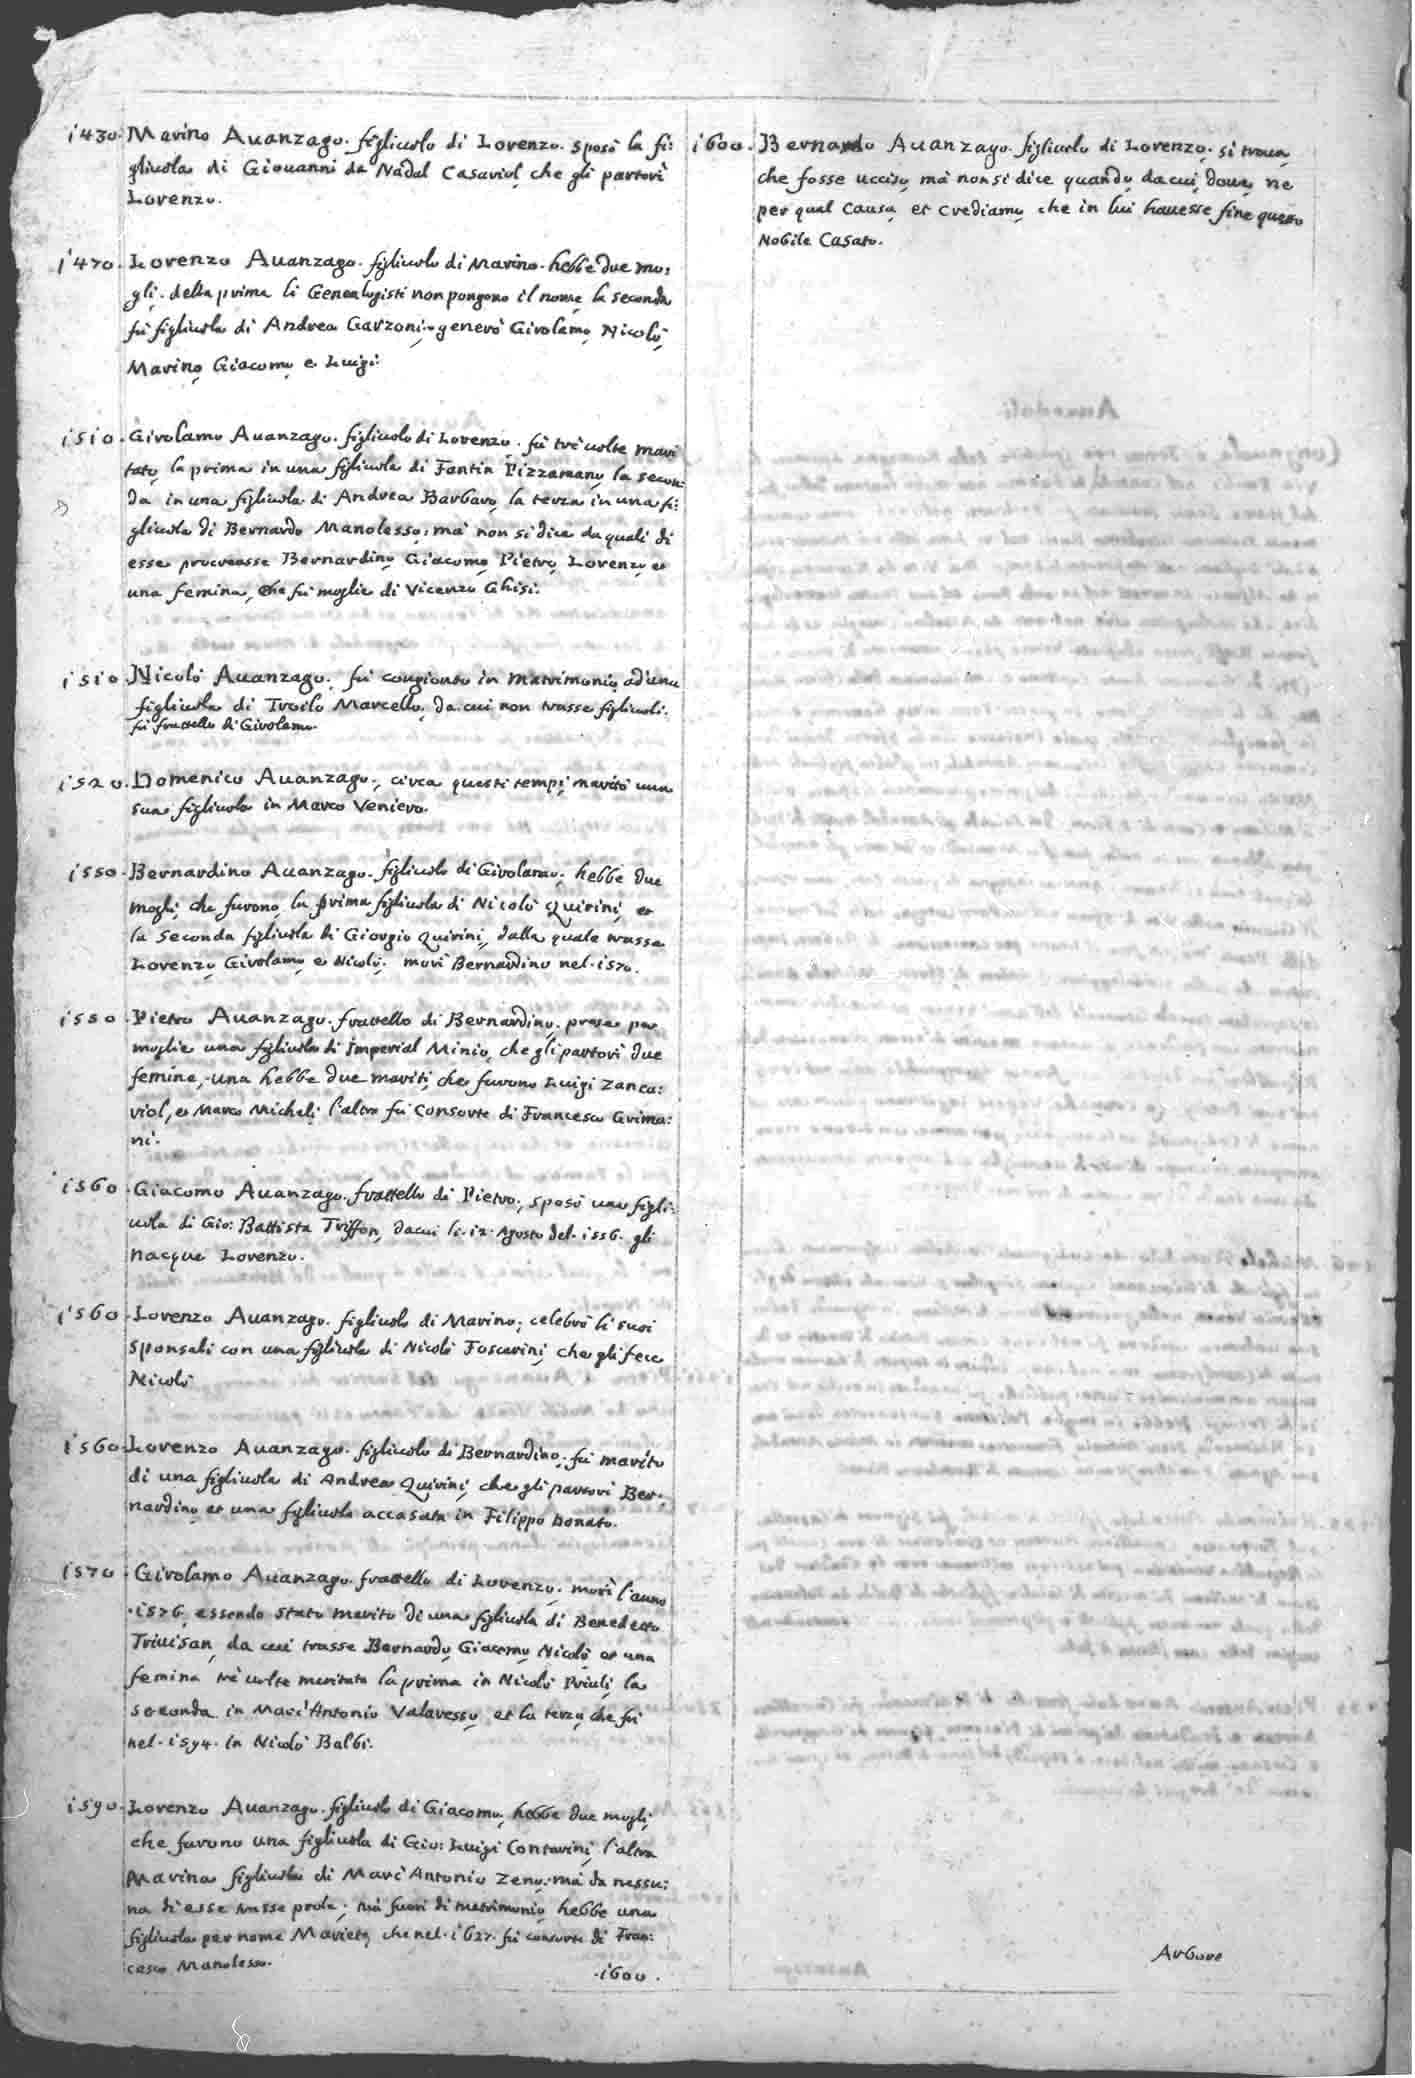 1430. Marino Auanzago. figliuolo di Lorenzo. sposò la fi:
gliuola di Giouanni da Nadal Casariol, che gli partorì
Lorenzo.
1470. Lorenzo Auanzago. figliuolo di Marino. hebbe due mo:
gli. della prima li Genealogisti non pongono il nome, la seconda
fù figliuola di Andrea Garzoni. generò Girolamo, Nicolò,
Marino, Giacomo, e Luigi.
1510. Girolamo Auanzago. figliuolo di Lorenzo. fù trè uolte mari
tato, la prima in una figliuola di Fantin Pizzamano, la secon:
da in una figliuola di Andrea Barbaro, la terza in una fi:
gliuola di Bernardo Manolesso, mà non si dice da quali di
esse procreasse Bernardino, Giacomo, Pietro, Lorenzo, et
una femina, che fù moglie di Vicenzo Ghisi.
1510. Nicolò Auanzago. fù congionto in matrimonio ad una
figliuola di Troilo Marcello, da cui non trasse figliuoli.
fù frattello di Girolamo.
1520. Domenico Auanzago. circa questi tempi maritò una
sua figliuola in Marco Veniero.
1550. Bernardino Auanzago. figliuolo di Girolamo. hebbe due
mogli, che furono, la prima figliuola di Nicolò Quirini, et
la seconda figliuola di Giorgio Quirini, dalla quale trasse
Lorenzo, Girolamo, e Nicolò. morì Bernardino nel. 1570.
1550. Pietro Auanzago. frattello di Bernardino. prese per
moglie una figliuola di Imperial Minio, che gli partorì due
femine, una hebbe due mariti, che furono Luigi Zanca:
riol, et Marco Micheli, l'altra fù consorte di Francesco Grima:
ni.
1560. Giacomo Auanzago. frattello di Pietro. sposò una figli:
uola di Gio: Battista Triffon, da cui li. 12. Agosto del. 1556. gli
nacque Lorenzo.
1560. Lorenzo Auanzago. figliuolo di Marino. celebrò li suoi
sponsali con una figliuola di Nicolò Foscarini, che gli fece
Nicolò
1560. Lorenzo Auanzago. figliuolo di Bernardino. fù marito
di una figliuola di Andrea Quirini, che gli partorì Ber:
nardino, et una figliuola accasata in Filippo Donato.
1570. Girolamo Auanzago. frattello di Lorenzo. morì l'anno
.1576. essendo stato marito di una figliuola di Benedetto
Triuisan, da cui trasse Bernardo, Giacomo, Nicolò, et una
femina trè uolte maritata, la prima in Nicolò Priuli, la
seconda in Marc'Antonio Valaresso, et la terza, che fù
nel. 1594. in Nicolò Balbi.
1590. Lorenzo Auanzago. figliuolo di Giacomo, hebbe due mogli,
che furono una figliuola di Gio: Luigi Contarini, l'altra
Marina figliuola di Marc'Antonio Zeno, mà da nessu:
na di esse trasse prole, mà fuori di matrimonio hebbe una
figliuola per nome Marieta, che nel. 1627. fù consorte di Fran:
cesco Manolesso.
.1600.
1600. Bernardo Auanzago. figliuolo di Lorenzo. si troua,
che fosse ucciso, mà non si dice quando, da cui, doue, ne
per qual causa, et crediamo, che in lui hauesse fine questo
Nobile Casato.
Arbore